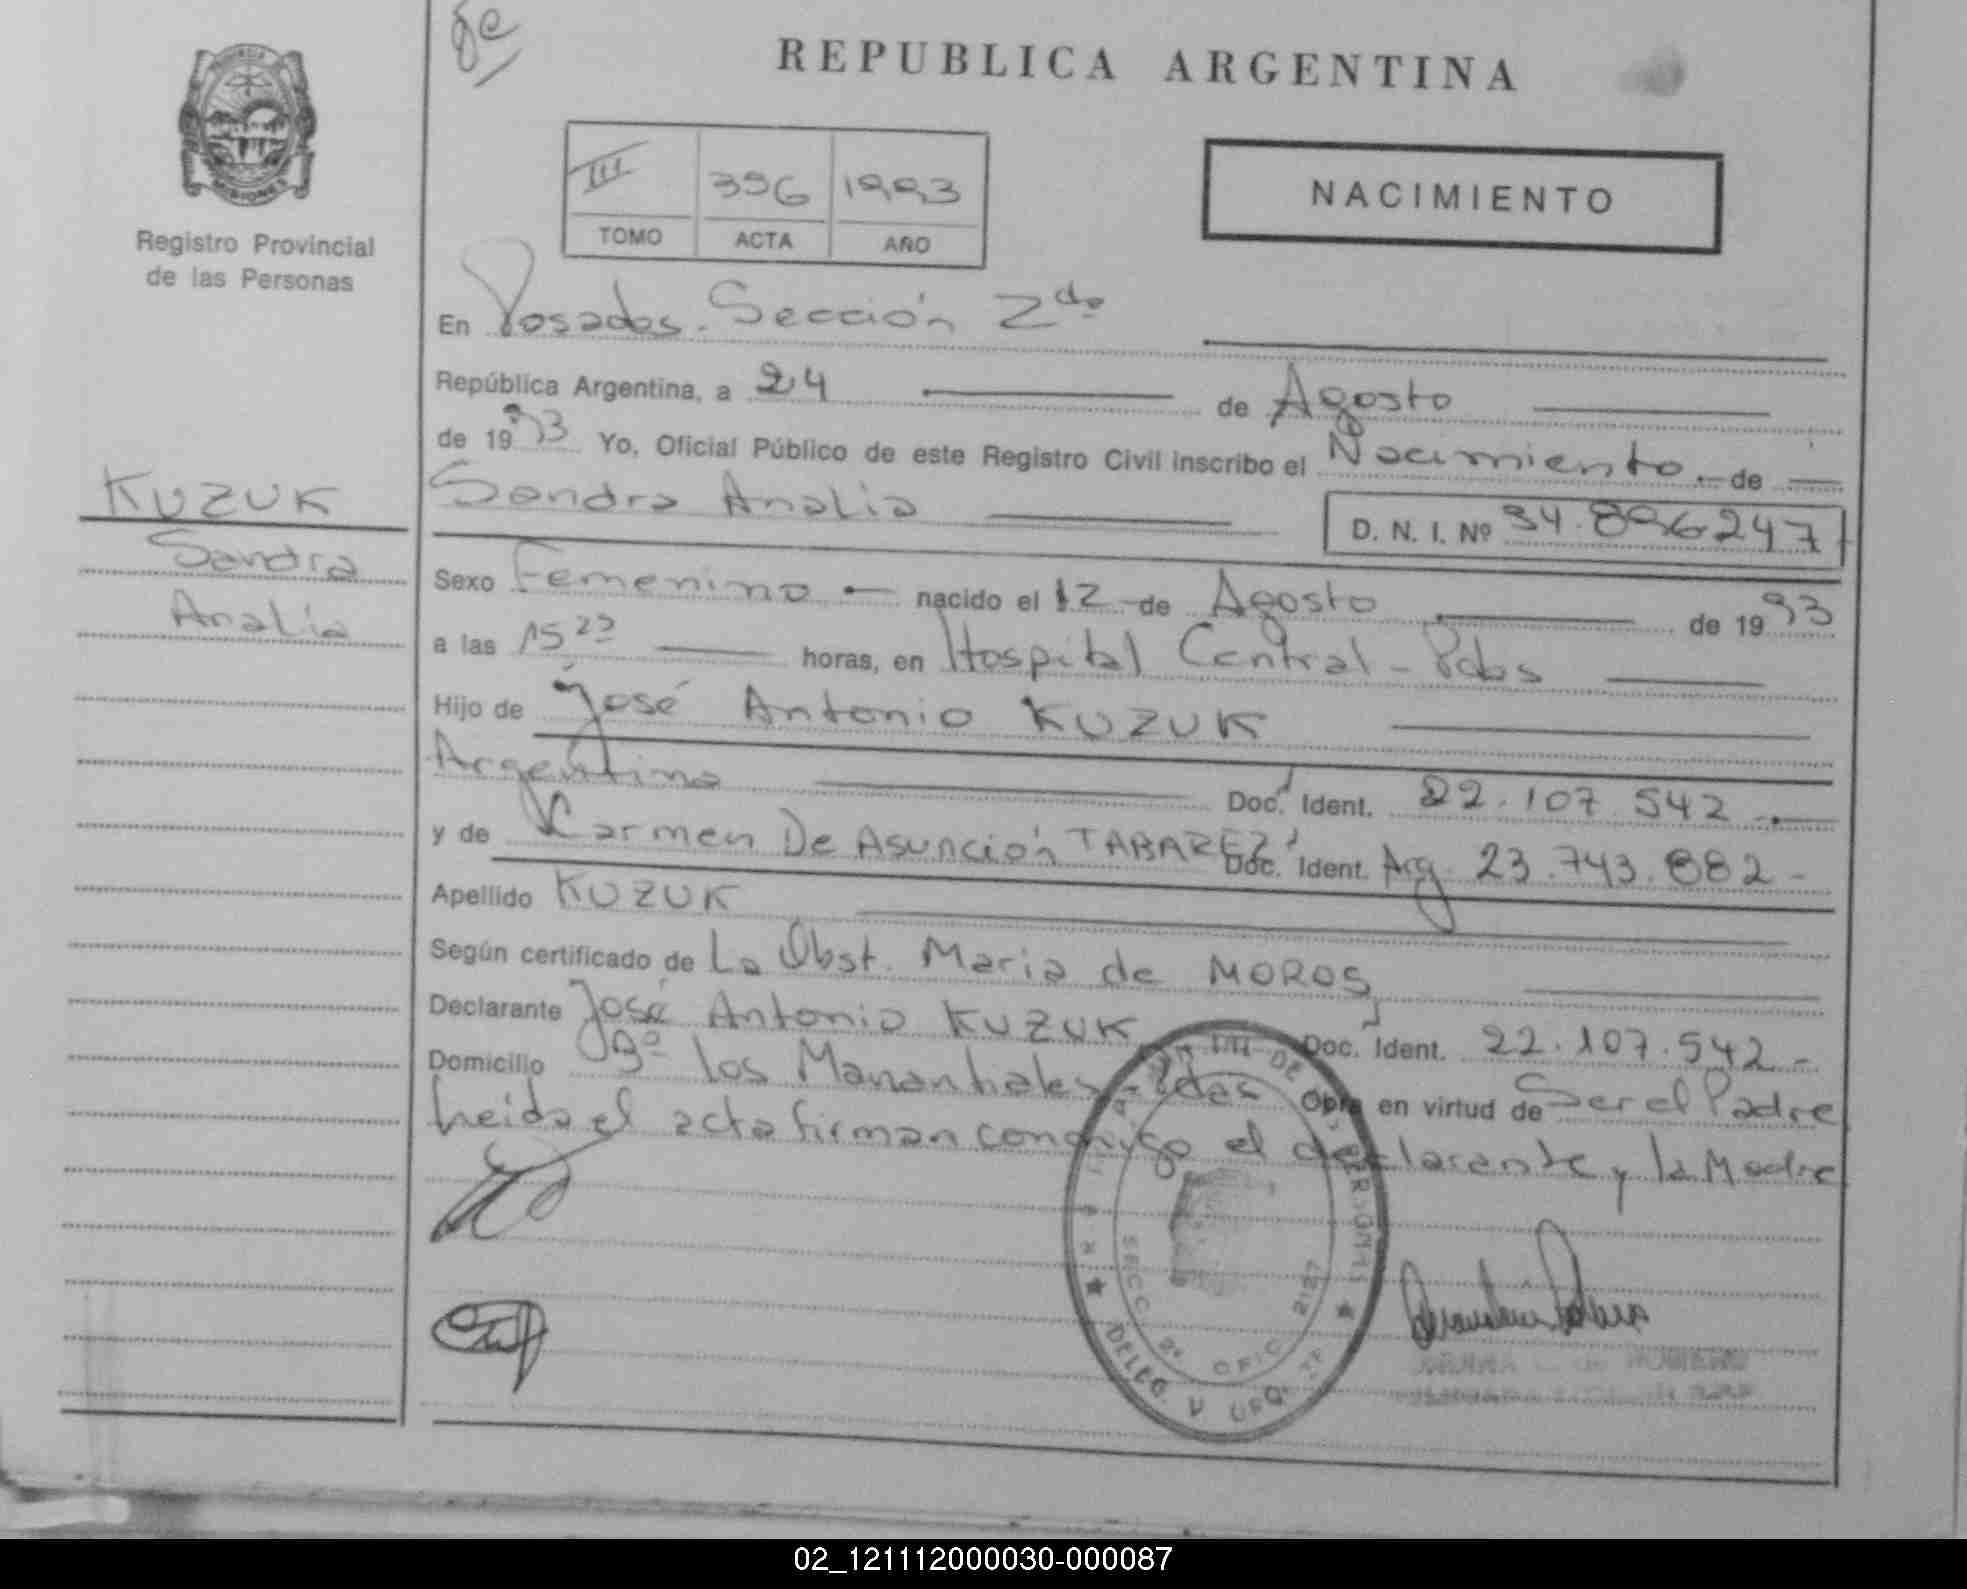 REPUBLICA ARGENTINA
MISIONES
Registro Provincial
de las Personas
III 396 1993
TOMO ACTA AÑO
NACIMIENTO
En Posadas. Sección 2da
República Argentina, a 24 de Agosto
de 1993 Yo, Oficial Público de este Registro Civil inscribo el Nacimiento de
Sandra Analia D. N. I. Nº 34.896247
KUZUK
Sandra
Analia
Sexo Femenino nacido el 12 de Agosto de 1993
a las 15 horas, en Hospital Central - Pdas
Hijo de José Antonio KUZUK
Argentino Doc. Ident. 22.107.542
y de Carmen De Asunción TABAREZ Doc. Ident. Arg. 23.743.882-
Apellido KUZUK
Según certificado de La Obst. Maria de MOROS
Declarante José Antonio KUZUK Doc. Ident. 22.107.542-
Domicilio Bº los Manantiales - Pdas Obra en virtud de Ser el Padre
Leida el acta firman conmigo el declarante y la Madre
SECC. 2º OFIC. 2127
DELEG.
02_121112000030-000087